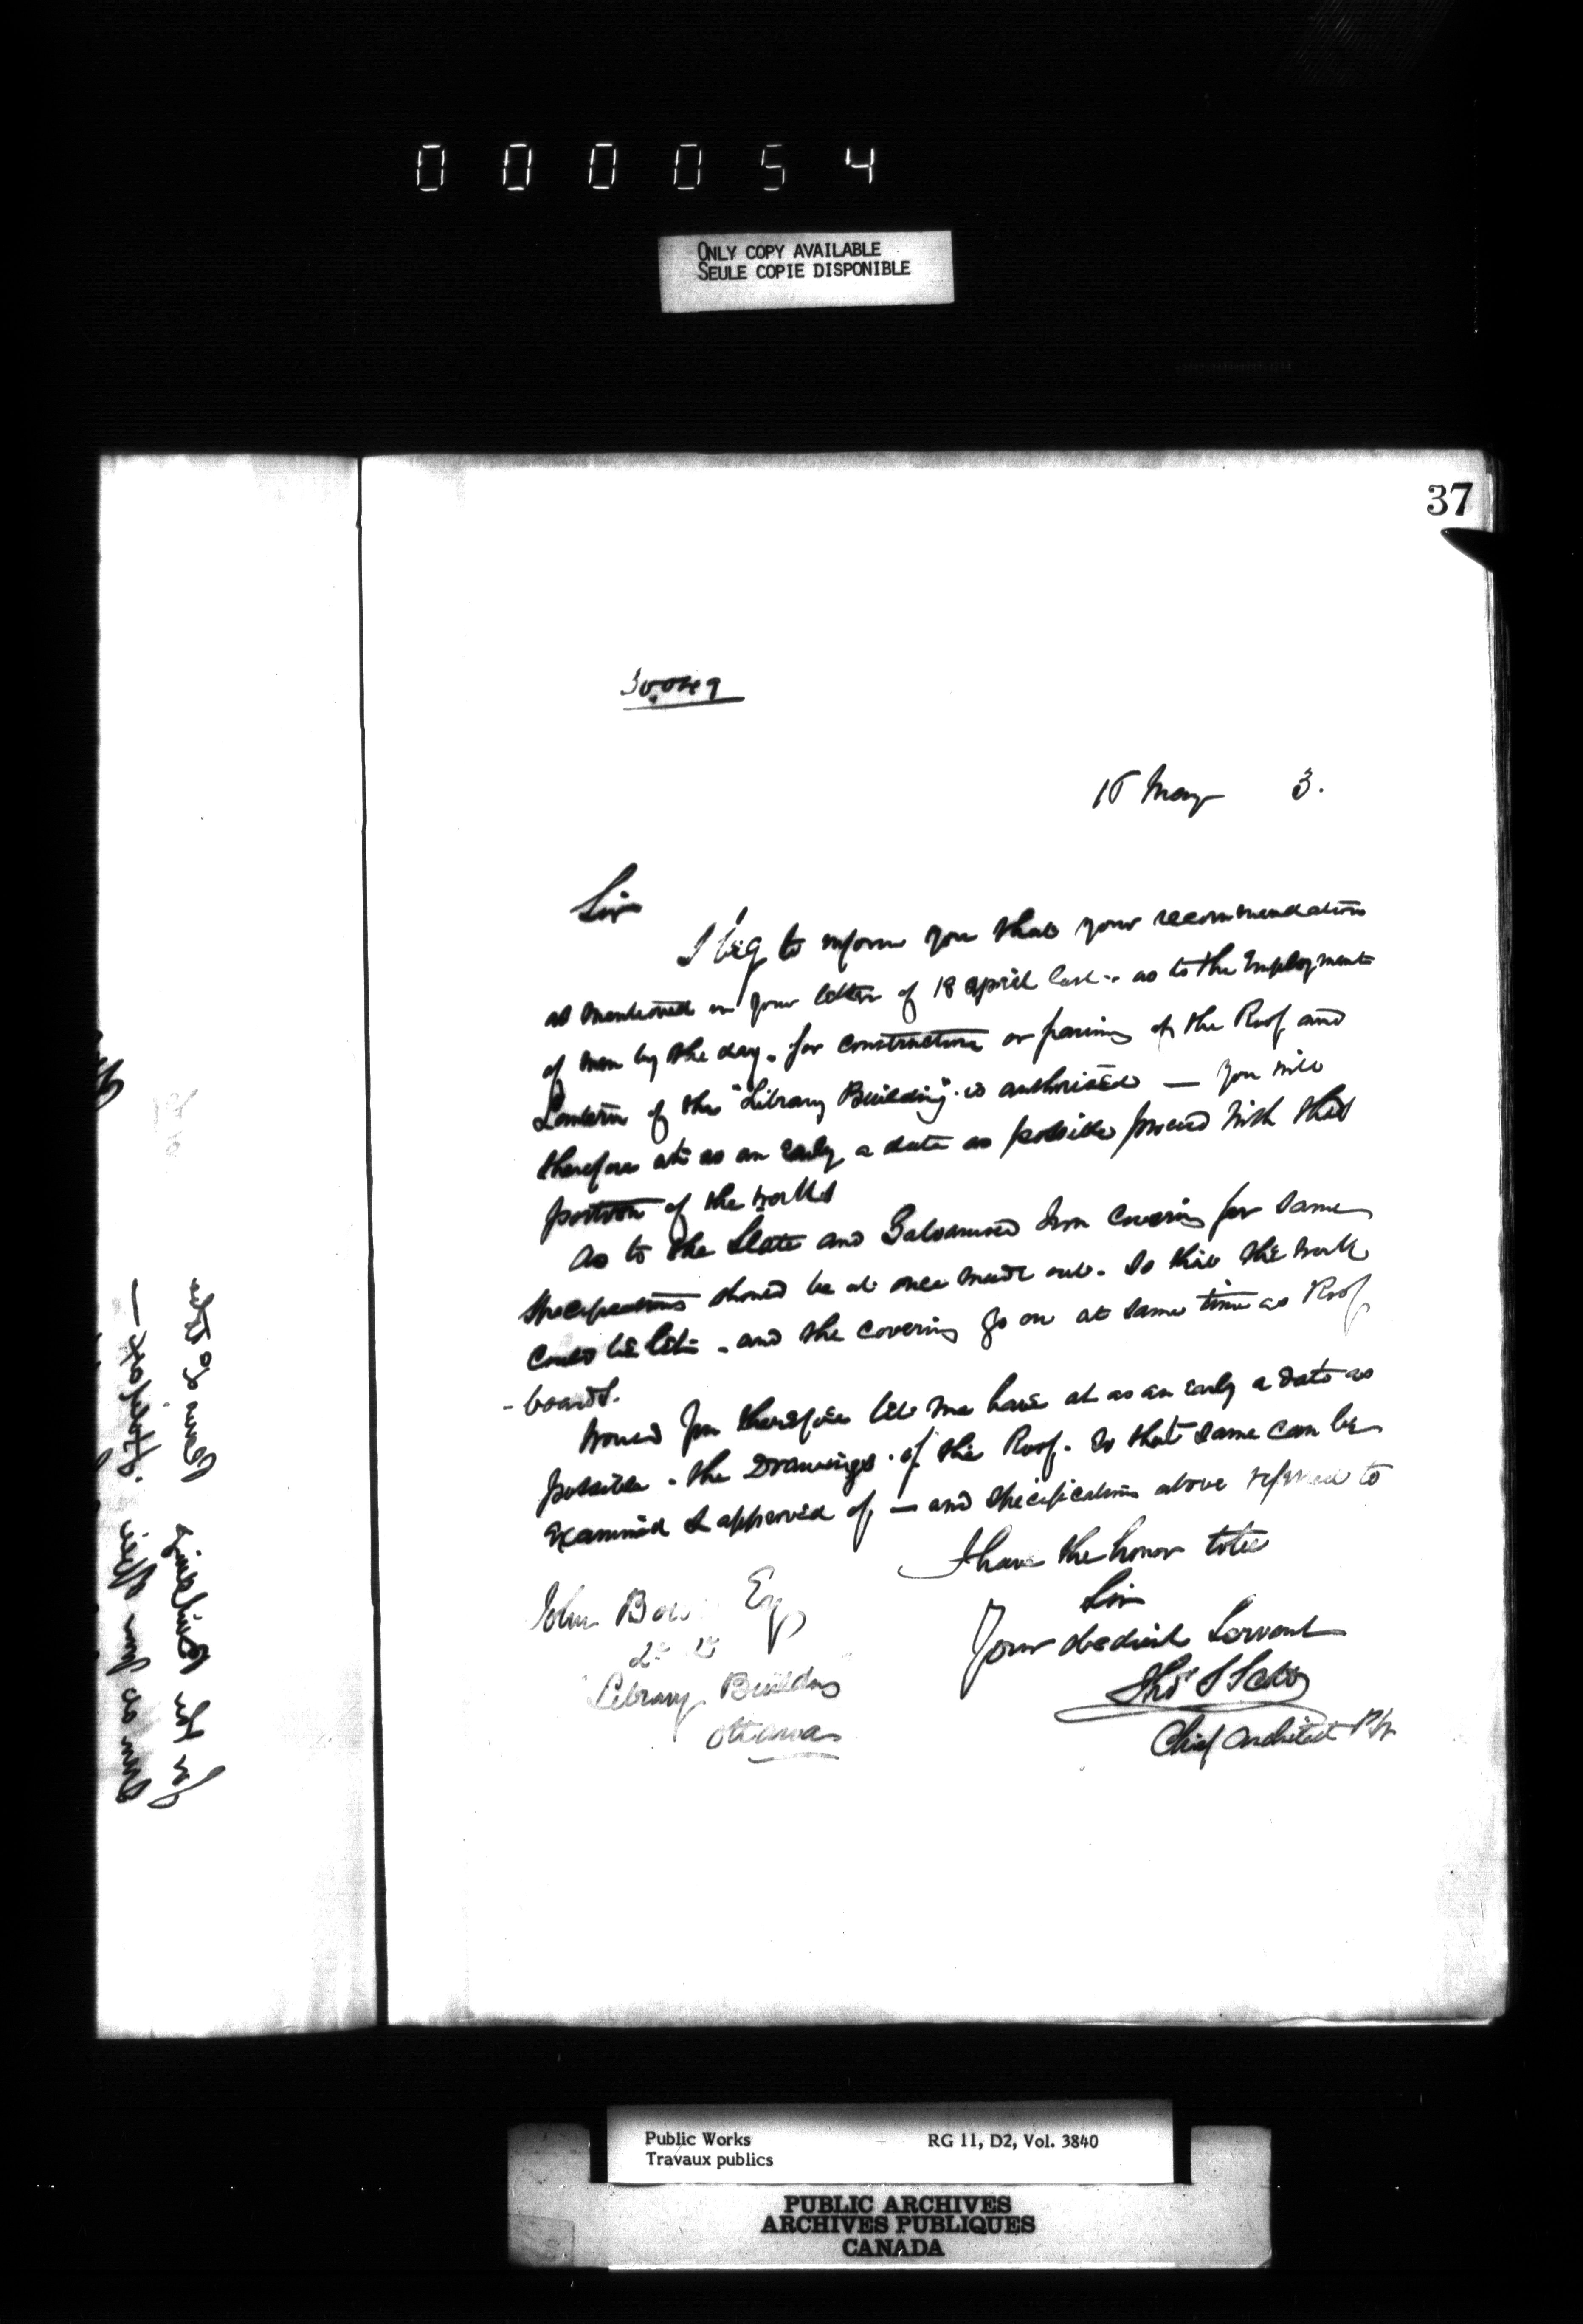 000054
ONLY COPY AVAILABLE
SEULE COPIE DISPONIBLE
37
May 3.
Sir
I beg to inform you that your recommendation
as mentioned in your letter of 18 April last - as to the Employment
of men by the day. for construction or framing of the Roof and
Lantern of the "Library Building" is authorized — You will
therefore at as an Early a date as possible proceed with that
portion of the works
As to the Slate and Galvanized Iron Covering for same
Specifications should be at once made out. So that the work
could be let. and the covering go on at same time as Roof
-boards.
Would you therefore let me have at as an early a date as
possible. the Drawings. of the Roof. so that same can be
Examined & approved of — and specifications above referred to
I have the honor to be
Sir
Your obedient Servant
Thos S Scott
Chief Architect P/W
John Esq
Library Building
Ottawa
same as your Office
for the Building
Public Works RG 11, D2, Vol. 3840
Travaux publics
PUBLIC ARCHIVES
ARCHIVES PUBLIQUES
CANADA